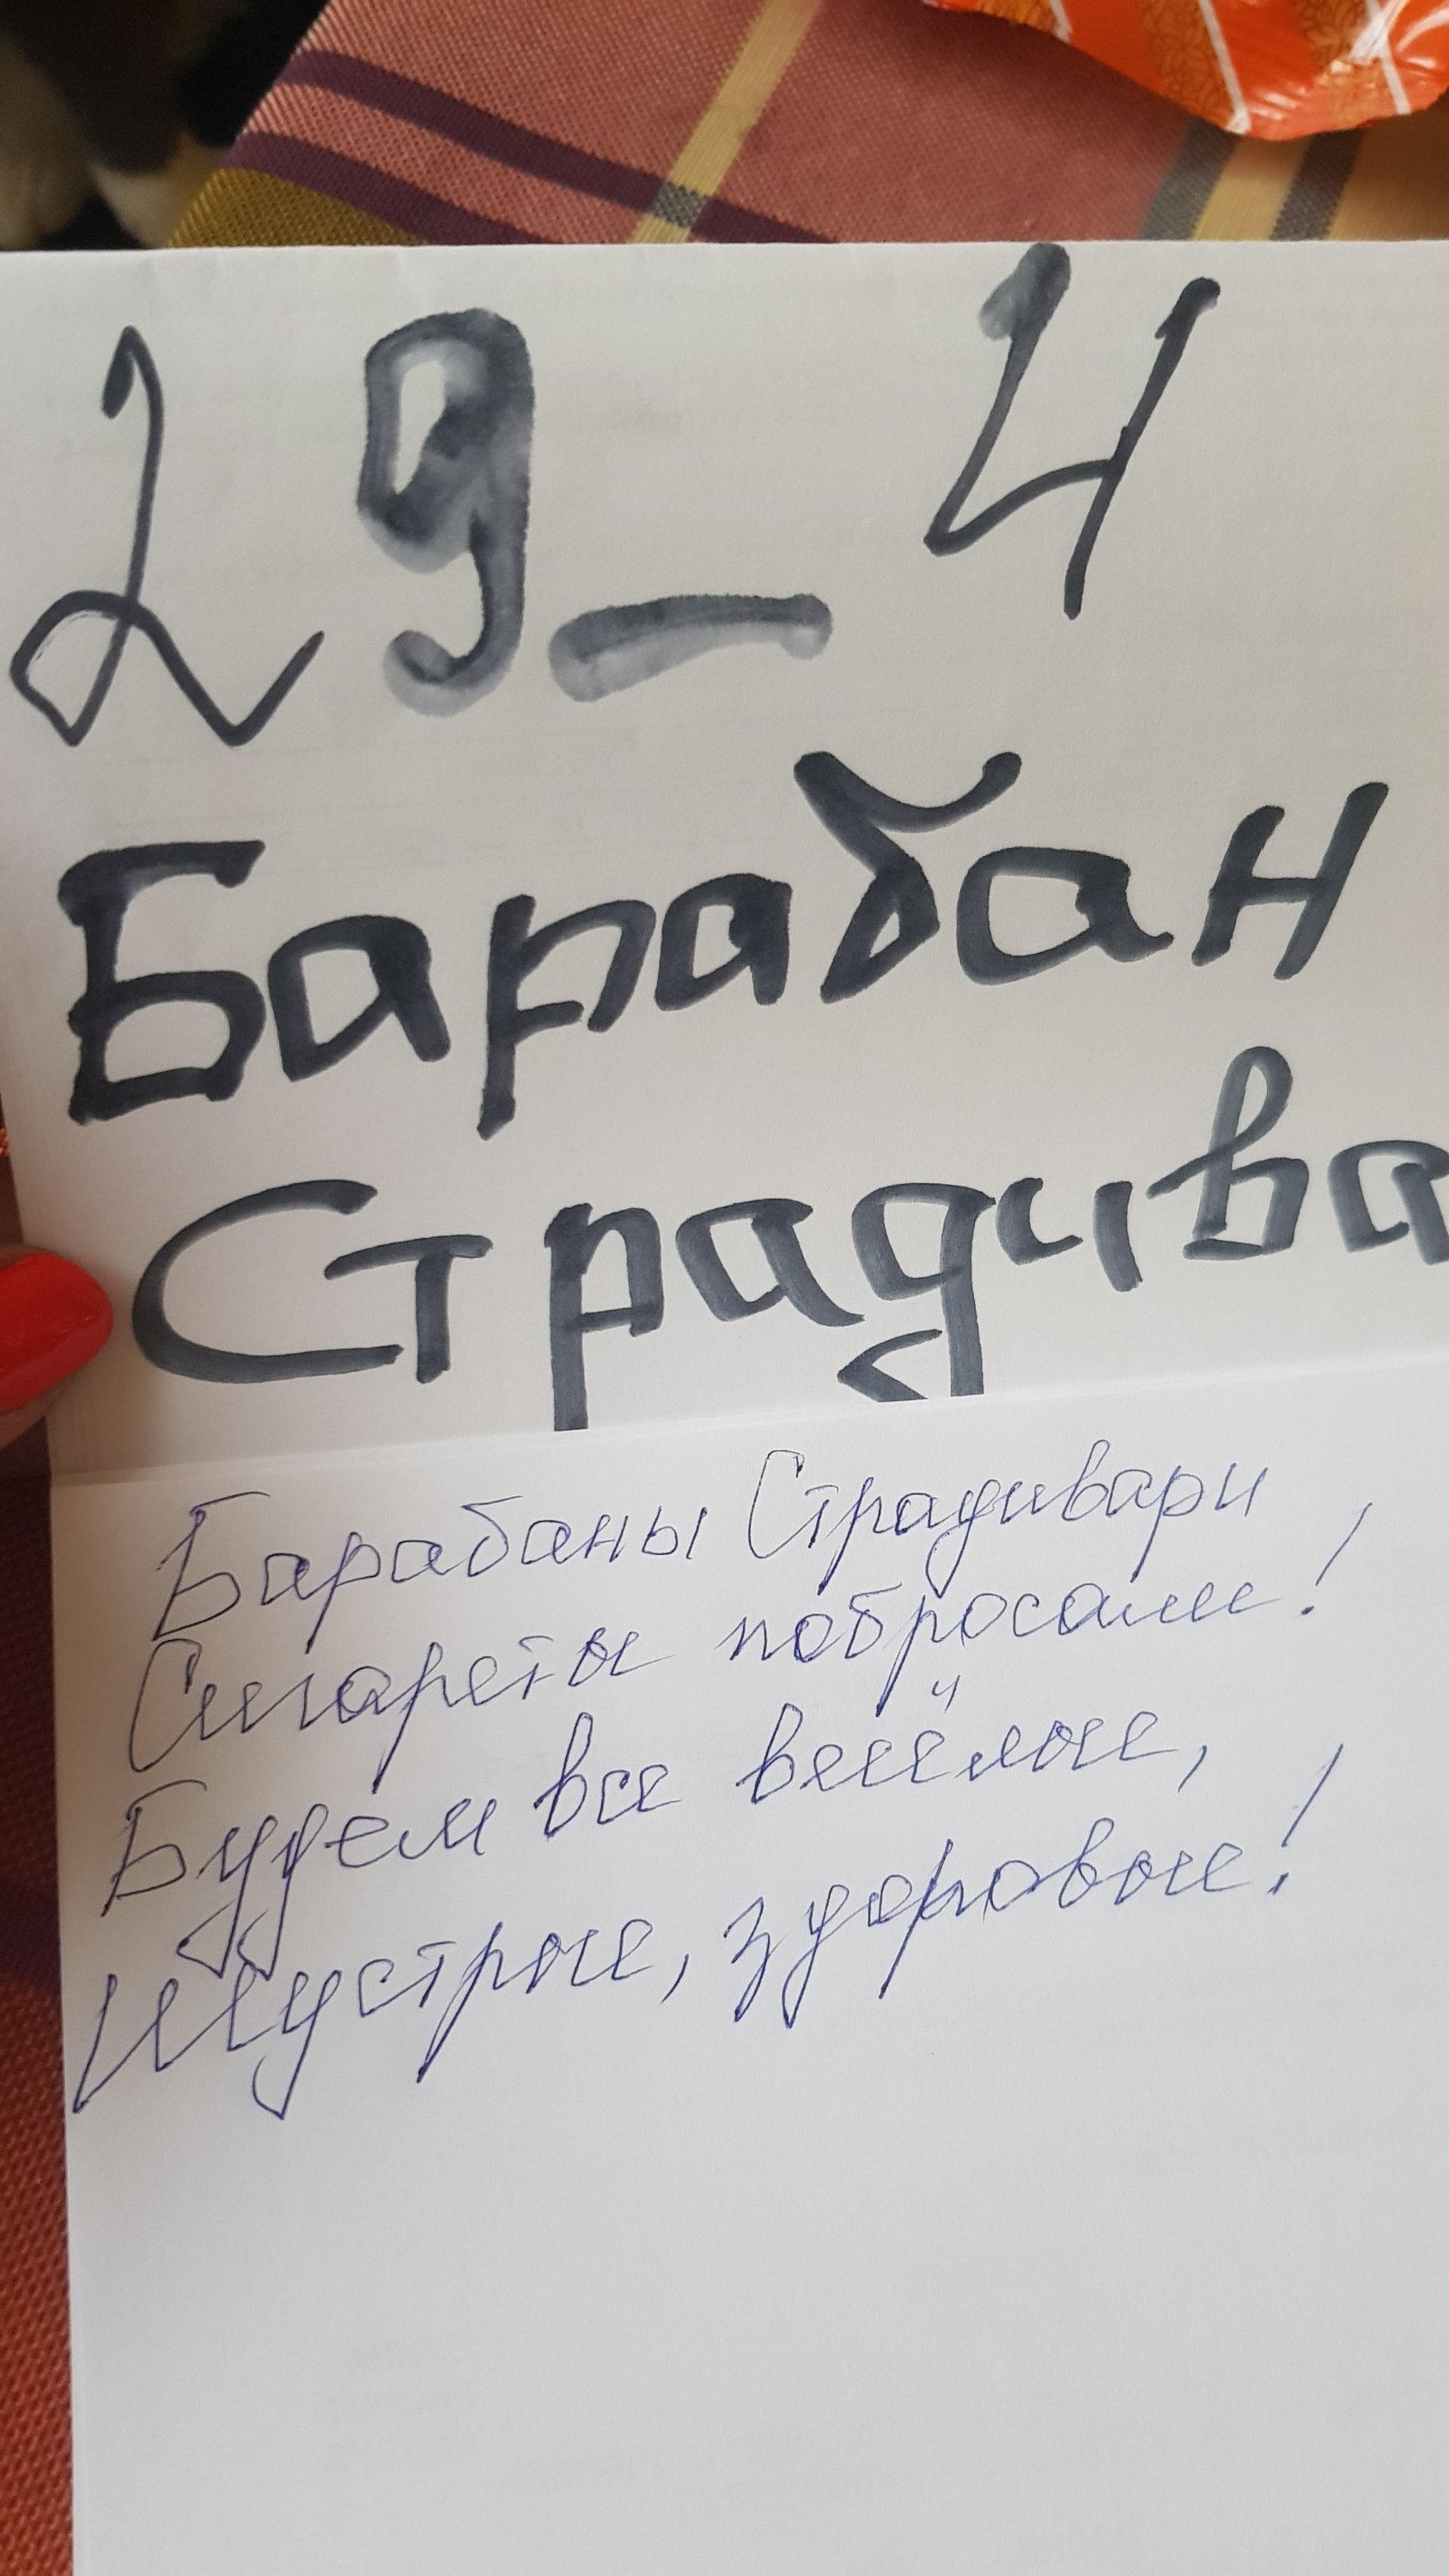 29_4
Барабан
Страдива
Барабаны Страдивари
Сигареты побросали!
Будем все весёлые,
Шустрые, здоровые!